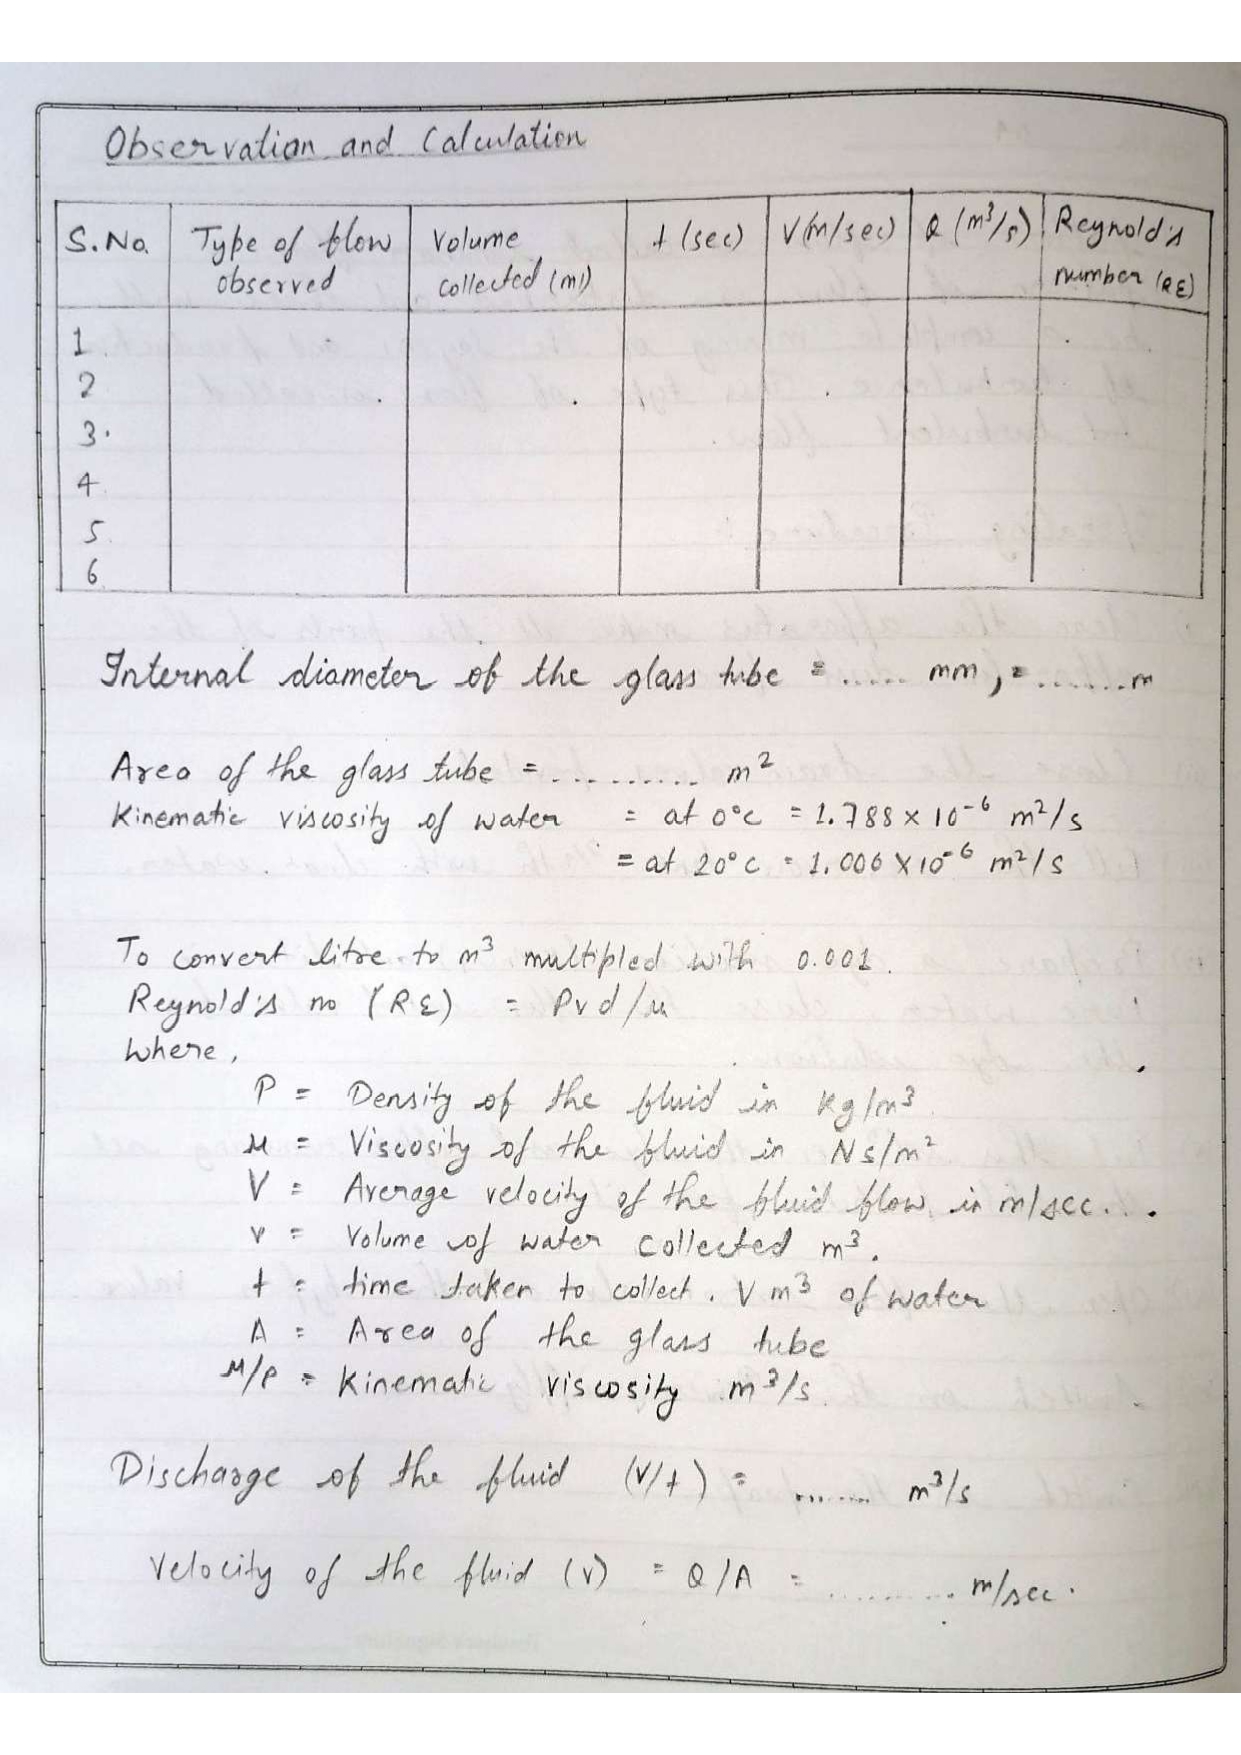 Observation and Calculation
S.No. Type of flow observed Volume collected (ml) t (sec) V(m/sec) Q (m³/s) Reynold's number (RE)
1.
2
3.
4.
5.
6.
Internal diameter of the glass tube = ...... mm, = ........m
Area of the glass tube = ........... m²
Kinematic viscosity of water = at 0°c = 1.788 × 10⁻⁶ m²/s
= at 20° c = 1.006 × 10⁻⁶ m²/s
To convert litre to m³ multipled with 0.001.
Reynold's no (RE) = Pvd/μ
Where,
P = Density of the fluid in Kg/m³
μ = Viscosity of the fluid in Ns/m²
V = Average velocity of the fluid flow in m/sec...
v = Volume of water collected m³.
t = time taken to collect. V m³ of water
A = Area of the glass tube
μ/ρ = Kinematic viscosity m³/s.
Discharge of the fluid (v/t) = ........ m³/s
Velocity of the fluid (v) = Q/A = .......... m/sec.